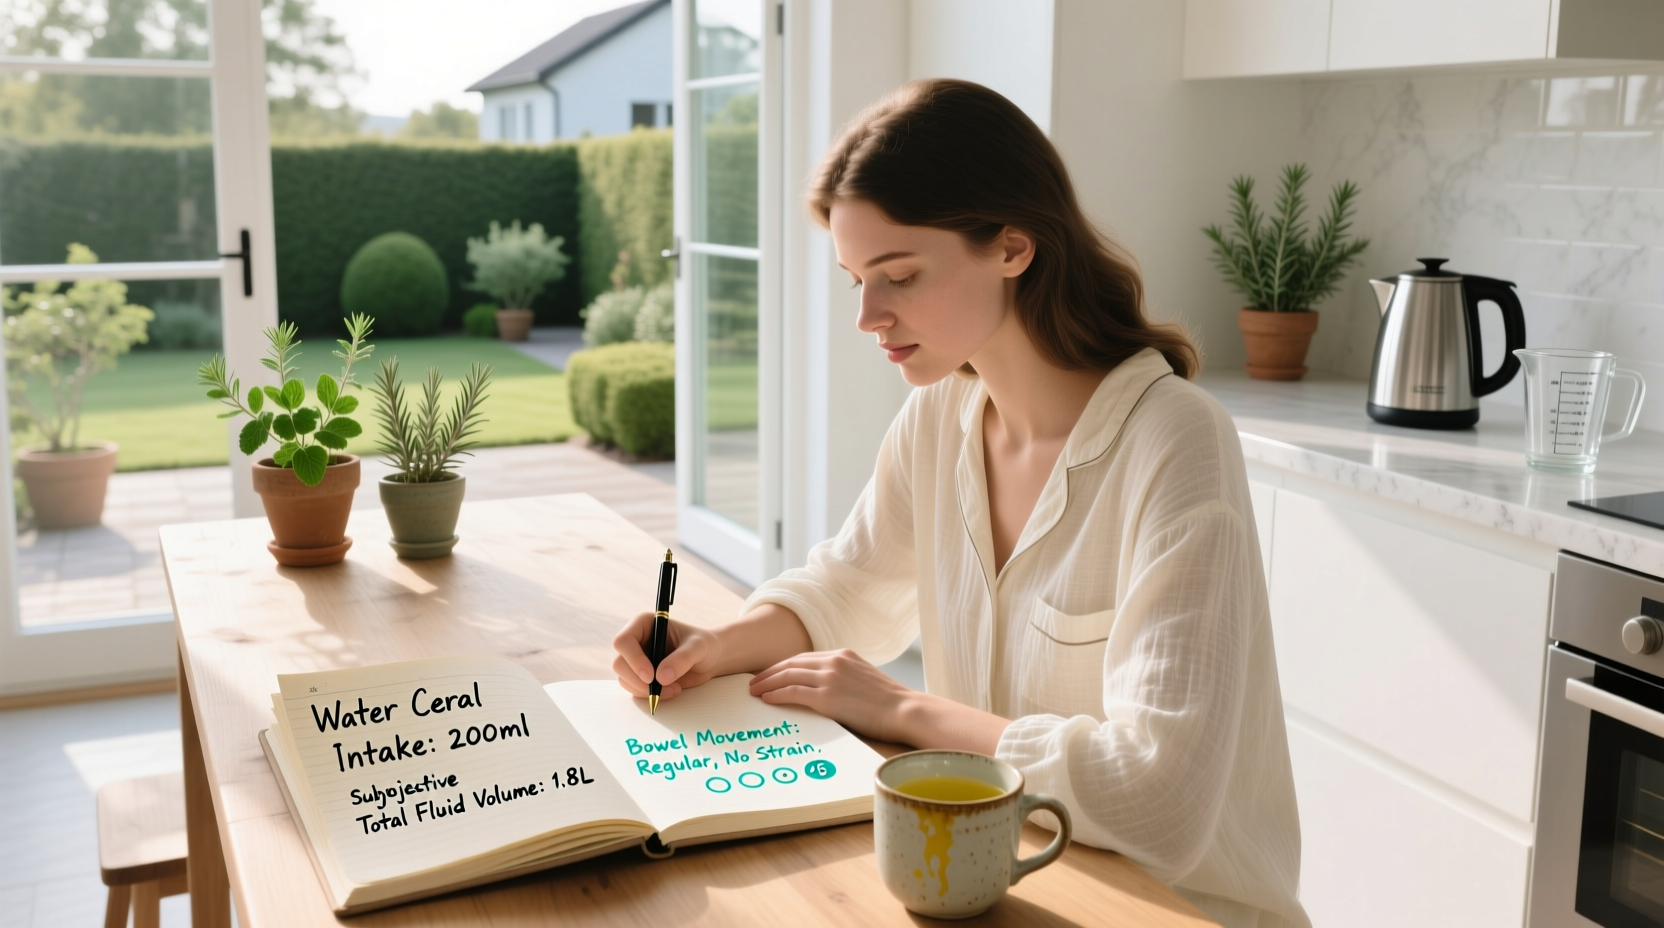 Water Ceral
Intake: 200ml
Subjojective
Total Fluid Volume: 1.8L
Bowel Movement:
Regular, No Strain.